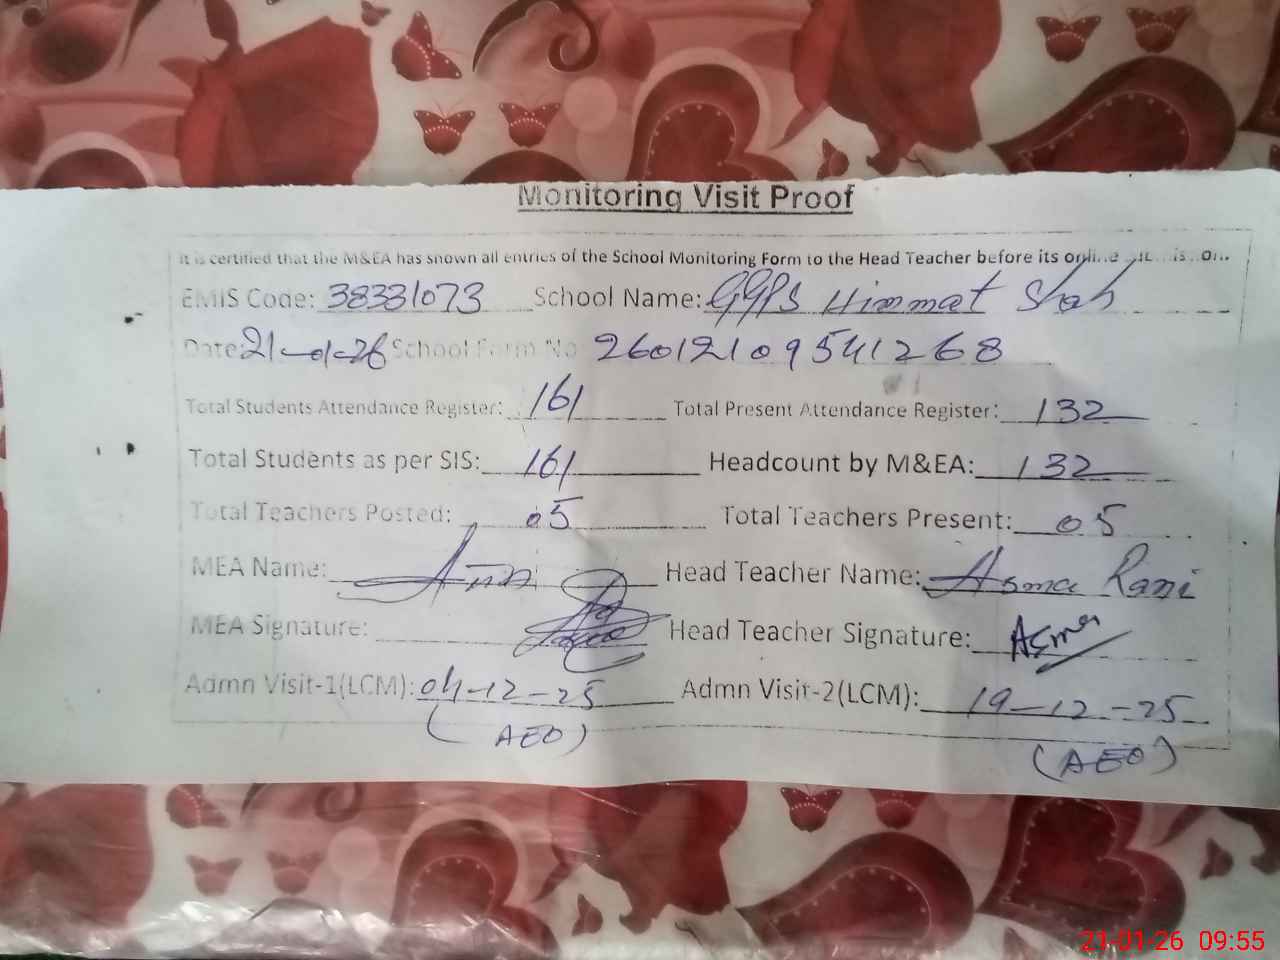 Monitoring Visit Proof
It is certified that the M&EA has shown all entries of the School Monitoring Form to the Head Teacher before its online
EMIS Code: 38331073 School Name: GGPS Himmat Shah
Date: 21-01-26 School Form No 2601210954 1268
Total Students Attendance Register: 161 Total Present Attendance Register: 132
Total Students as per SIS: 161 Headcount by M&EA: 132
Total Teachers Posted: 05 Total Teachers Present: 05
MEA Name: Head Teacher Name: Asma Rani
MEA Signature: Head Teacher Signature: Asma
Admn Visit-1(LCM): 04-12-25 Admn Visit-2(LCM): 19-12-25
(AEO) (AEO)
21-01-26 09:55